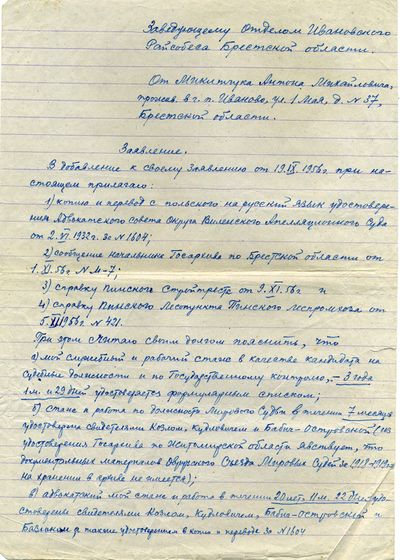 Заведующему Отделом Ивановского
Райсобеса Брестской области.
От Микитчука Антона Михайловича,
прожив. в г. п. Иваново, ул. 1 Мая, д. № 37,
Брестской области.
Заявление.
В добавление к своему Заявлению от 19.IX.1956г при на-
стоящем прилагаю:
1) копию и перевод с польского на русский язык удостовере-
ния Адвокатского Совета Округа Виленского Апелляционного Суда
от 2.VI.1932г. за № 1604;
2) сообщение начальника Госархива по Брестской области от
1.XI.56г № М-7;
3) справку Пинского Стройтреста от 9.XI.56г и
4) справку Пинского Лесопункта Пинского леспромхоза от
5.XI.1956г. № 421.
При этом считаю своим долгом пояснить, что
а) мой служебный и рабочий стаж в качестве кандидата на
судебные должности и по Государственному контролю, – 3 года
1 м. и 29 дней удостоверяется формулярным списком;
б) стаж и работа по должности Мирового Судьи в течении 7 месяцев
удостоверена свидетелями Козлом, Кудловичем и Бавиа-Островской (из
удостоверения Госархива по Житомирской области явствует, что
документальных материалов Овручского Съезда Мировых Судей за 1918-1919 год
на хранении в архиве не имеется);
в) адвокатский мой стаж и работа в течении 20 лет 11 м. 22 дней удо-
стоверены свидетелями Козлом, Кудловичем, Бавиа-Островской и
а также удостоверением в копии и переводе за № 1604